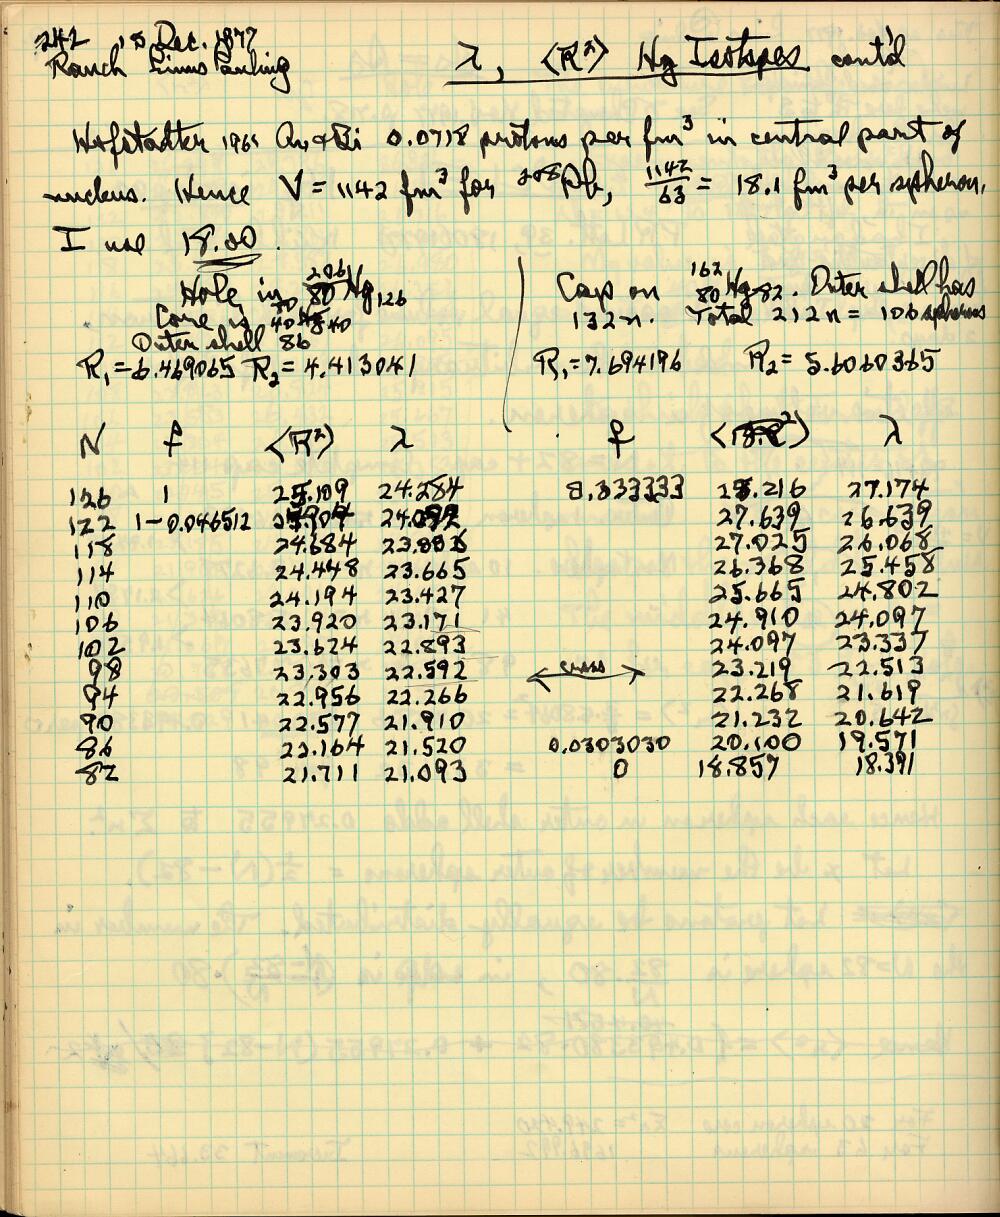 242 15 Dec. 1977
Ranch Linus Pauling λ, ⟨R²⟩ Hg Isotopes cont'd
Hofstadter Au & Bi 0.0718 protons per fm³ in central part of
nucleus. Hence V = 1142 fm³ for ²⁰⁸Pb, 1142/63 = 18.1 fm³ per spheron.
I use 18.00.
Hole in ²⁰⁶₈₀Hg₁₂₆
Core is
Outer shell 86
R₁=6.469065 R₂=4.413041
Cap on ¹⁶²₈₀Hg₈₂. Outer shell has
132n. Total 212n = 106 spherons
R₁=7.694196 R₂=5.6060365
N f ⟨R²⟩ λ f ⟨R²⟩ λ
126 1 25.109 24.284 0.333333 28.216 27.174
122 1-0.046512 27.639 26.639
118 24.684 27.025 26.068
114 24.448 23.665 26.368 25.458
110 24.194 23.427 25.665 24.802
106 23.920 23.171 24.910 24.097
102 23.624 22.893 24.097 23.337
98 23.303 22.592 ← cross → 23.219 22.513
94 22.956 22.266 22.268 21.619
90 22.577 21.910 21.232 20.642
86 22.164 21.520 0.0303030 20.100 19.571
82 21.711 21.093 0 18.857 18.391